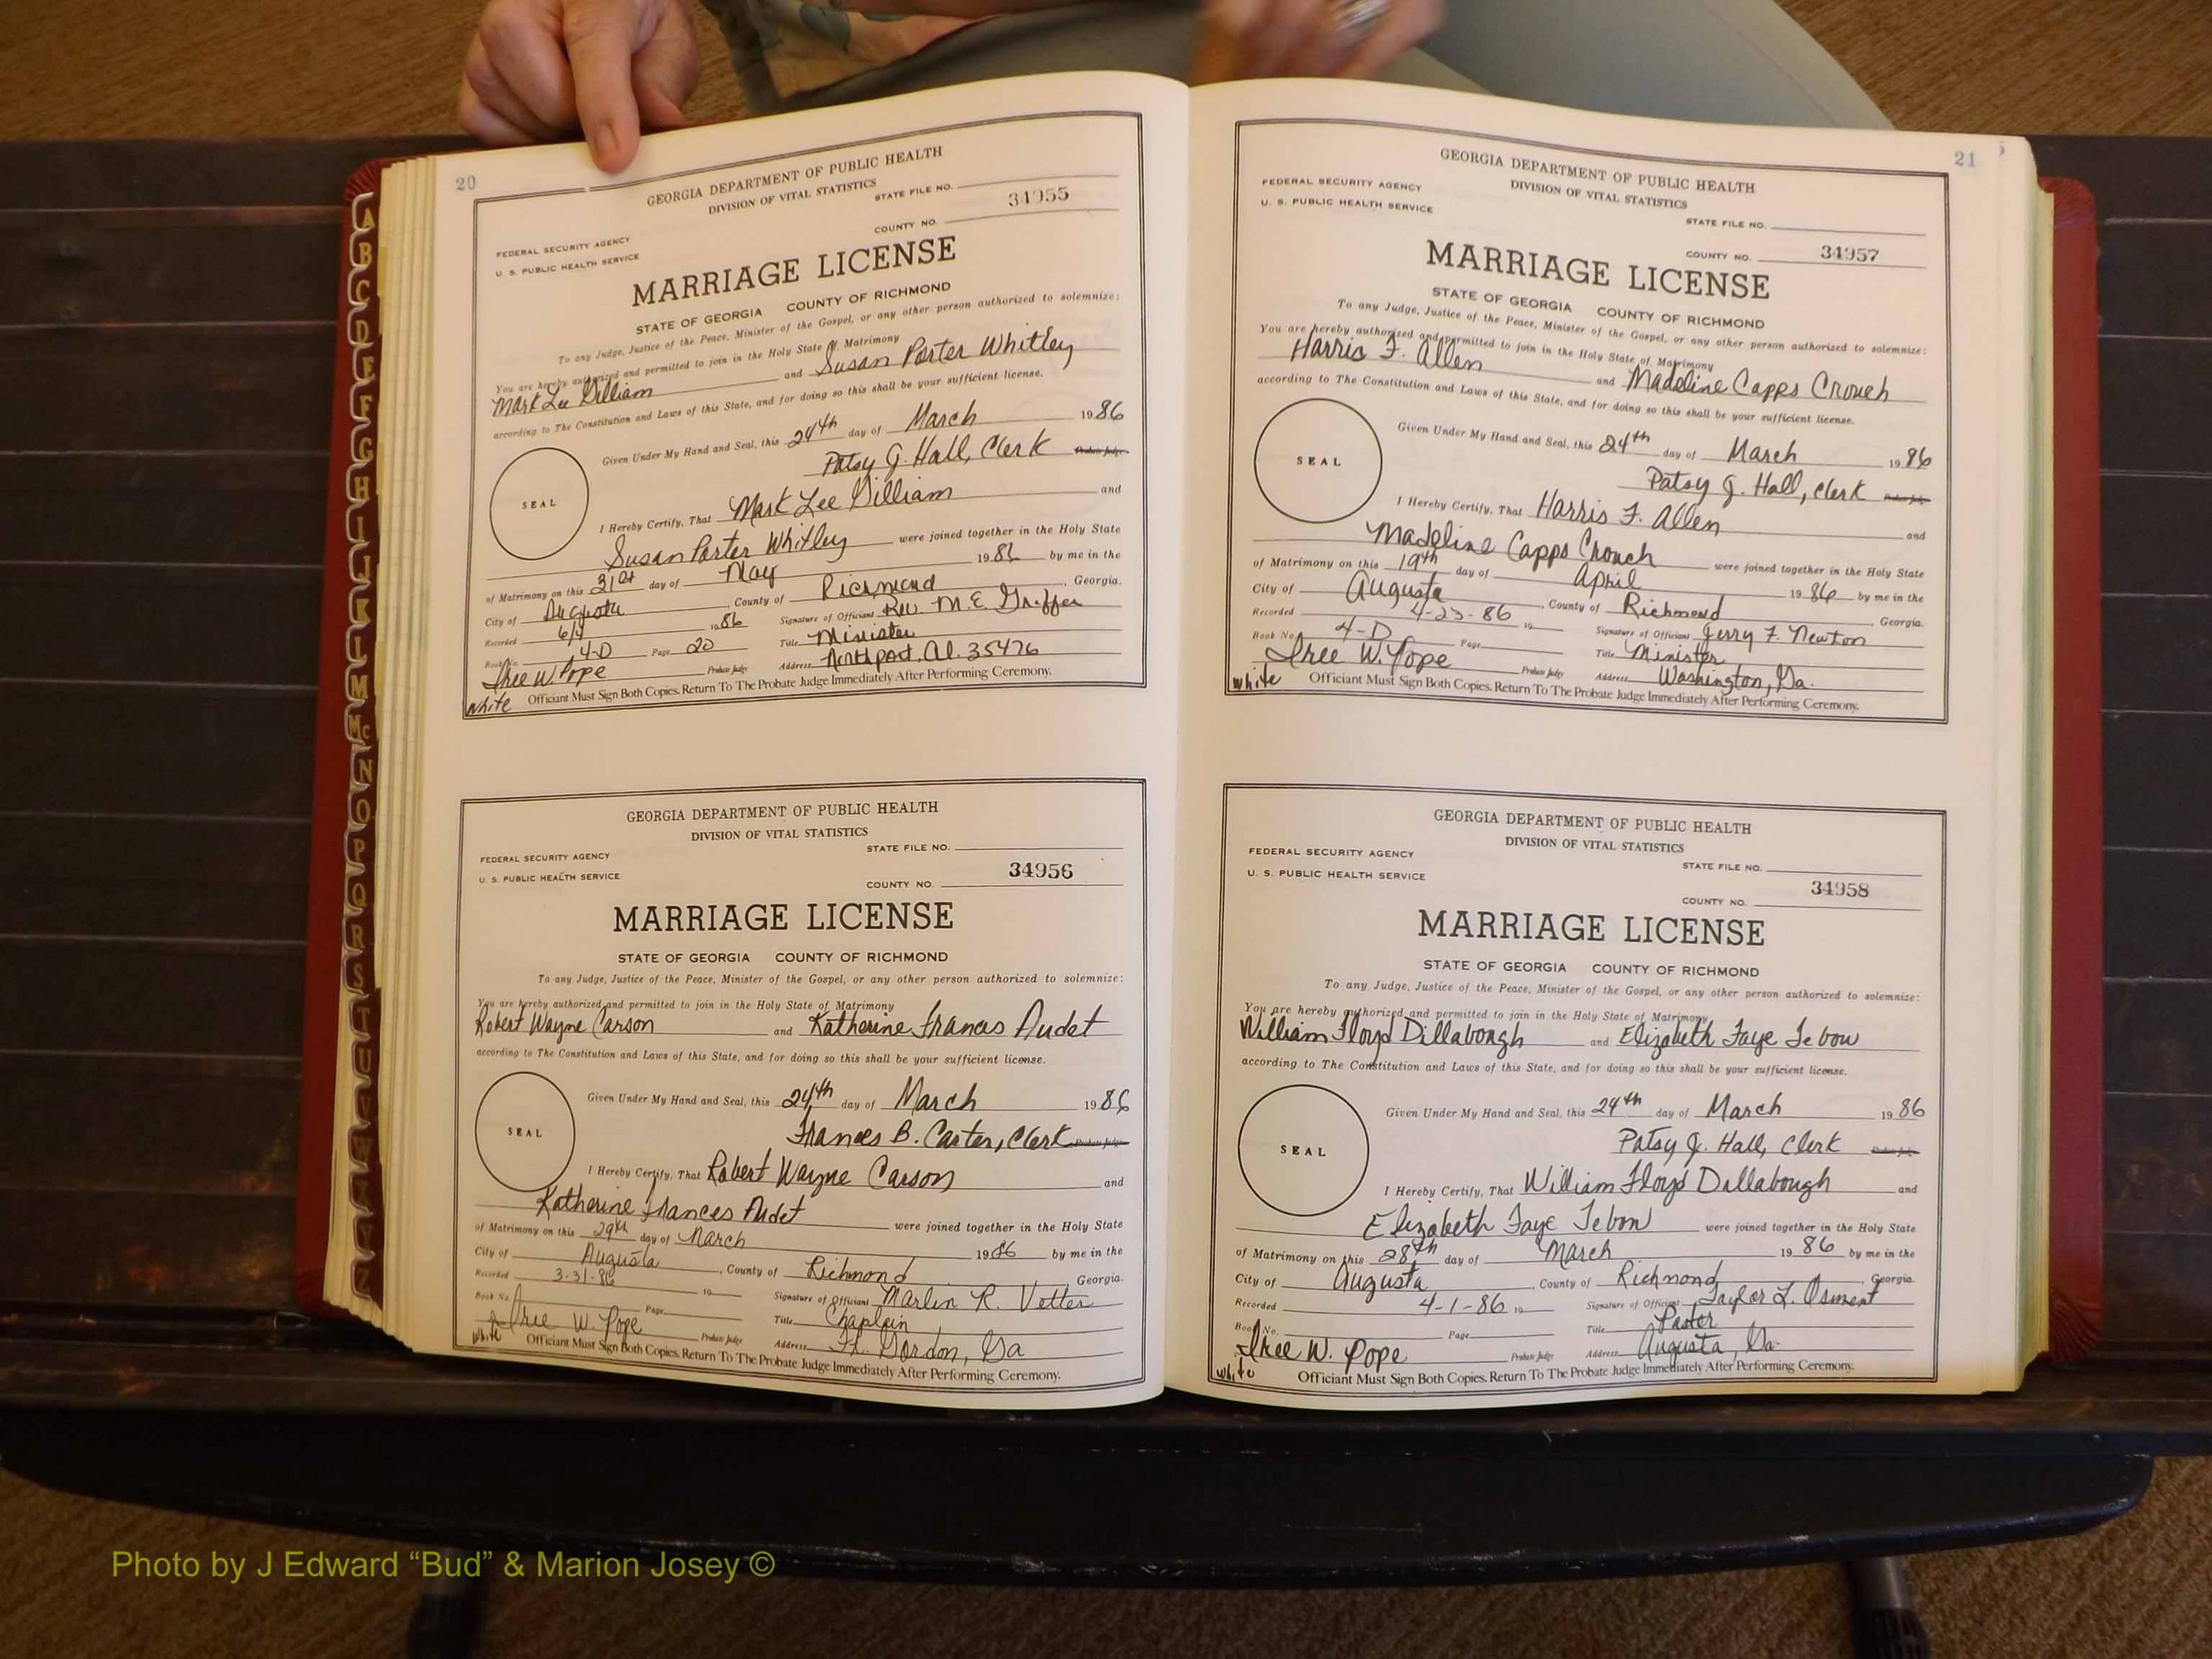 20
GEORGIA DEPARTMENT OF PUBLIC HEALTH
DIVISION OF VITAL STATISTICS
STATE FILE NO.
34955
COUNTY NO.
FEDERAL SECURITY AGENCY
U. S. PUBLIC HEALTH SERVICE
MARRIAGE LICENSE
STATE OF GEORGIA COUNTY OF RICHMOND
To any Judge, Justice of the Peace, Minister of the Gospel, or any other person authorized to solemnize:
You are hereby authorized and permitted to join in the Holy State of Matrimony
Mark Lee Gilliam and Susan Porter Whitley
according to The Constitution and Laws of this State, and for doing so this shall be your sufficient license.
Given Under My Hand and Seal, this 24th day of March 19 86
Patsy G. Hall, Clerk Probate Judge
SEAL
I Hereby Certify, That Mark Lee Gilliam and
Susan Porter Whitley were joined together in the Holy State
of Matrimony on this 31st day of May 19 86 by me in the
City of Augusta, County of Richmond, Georgia.
Recorded 6/4 19 86 Signature of Officiant Rev. M. E.
Book No. 4-D Page 20 Title Minister
Iree W. Pope Probate Judge Address Northport, Al. 35476
white Officiant Must Sign Both Copies. Return To The Probate Judge Immediately After Performing Ceremony.
GEORGIA DEPARTMENT OF PUBLIC HEALTH
DIVISION OF VITAL STATISTICS
STATE FILE NO.
FEDERAL SECURITY AGENCY
U. S. PUBLIC HEALTH SERVICE
34956
COUNTY NO.
MARRIAGE LICENSE
STATE OF GEORGIA COUNTY OF RICHMOND
To any Judge, Justice of the Peace, Minister of the Gospel, or any other person authorized to solemnize:
You are hereby authorized and permitted to join in the Holy State of Matrimony
Robert Wayne Carson and Katherine Frances Audet
according to The Constitution and Laws of this State, and for doing so this shall be your sufficient license.
Given Under My Hand and Seal, this 24th day of March 19 86
Frances B. Carter, Clerk Probate Judge
SEAL
I Hereby Certify, That Robert Wayne Carson and
Katherine Frances Audet were joined together in the Holy State
of Matrimony on this 29th day of March 19 86 by me in the
City of Augusta, County of Richmond Georgia.
Recorded 3-31-86 19 Signature of Officiant Marlin R. Vetter
Book No. Page Title Chaplain
Iree W. Pope Probate Judge Address Ft. Gordon, Ga
white Officiant Must Sign Both Copies. Return To The Probate Judge Immediately After Performing Ceremony.
21
GEORGIA DEPARTMENT OF PUBLIC HEALTH
DIVISION OF VITAL STATISTICS
FEDERAL SECURITY AGENCY
U. S. PUBLIC HEALTH SERVICE
STATE FILE NO.
COUNTY NO. 34957
MARRIAGE LICENSE
STATE OF GEORGIA COUNTY OF RICHMOND
To any Judge, Justice of the Peace, Minister of the Gospel, or any other person authorized to solemnize:
You are hereby authorized and permitted to join in the Holy State of Matrimony
Harris F. Allen and Madeline Capps Crouch
according to The Constitution and Laws of this State, and for doing so this shall be your sufficient license.
Given Under My Hand and Seal, this 24th day of March 19 86
Patsy G. Hall, Clerk Probate Judge
SEAL
I Hereby Certify, That Harris F. Allen and
Madeline Capps Crouch were joined together in the Holy State
of Matrimony on this 19th day of April 19 86 by me in the
City of Augusta, County of Richmond Georgia.
Recorded 4-23-86 19 Signature of Officiant Jerry F. Newton
Book No. 4-D Page Title Minister
Iree W. Pope Probate Judge Address Washington, Ga.
white Officiant Must Sign Both Copies. Return To The Probate Judge Immediately After Performing Ceremony.
GEORGIA DEPARTMENT OF PUBLIC HEALTH
DIVISION OF VITAL STATISTICS
FEDERAL SECURITY AGENCY
U. S. PUBLIC HEALTH SERVICE
STATE FILE NO.
34958
COUNTY NO.
MARRIAGE LICENSE
STATE OF GEORGIA COUNTY OF RICHMOND
To any Judge, Justice of the Peace, Minister of the Gospel, or any other person authorized to solemnize:
You are hereby authorized and permitted to join in the Holy State of Matrimony
William Floyd Dillabough and Elizabeth Faye Tebow
according to The Constitution and Laws of this State, and for doing so this shall be your sufficient license.
Given Under My Hand and Seal, this 24th day of March 19 86
Patsy G. Hall, Clerk
SEAL
I Hereby Certify, That William Floyd Dillabough and
Elizabeth Faye Tebow were joined together in the Holy State
of Matrimony on this 28th day of March 19 86 by me in the
City of Augusta, County of Richmond, Georgia.
Recorded 4-1-86 19 Signature of Officiant Taylor L. Osment
Book No. Page Title Pastor
Iree W. Pope Probate Judge Address Augusta, Ga.
white Officiant Must Sign Both Copies. Return To The Probate Judge Immediately After Performing Ceremony.
A
B
C
D
E
F
G
H
I
J
K
L
M
Mc
N
O
P
Q
R
S
T
U
V
W
X
Y
Z
Photo by J Edward “Bud” & Marion Josey ©